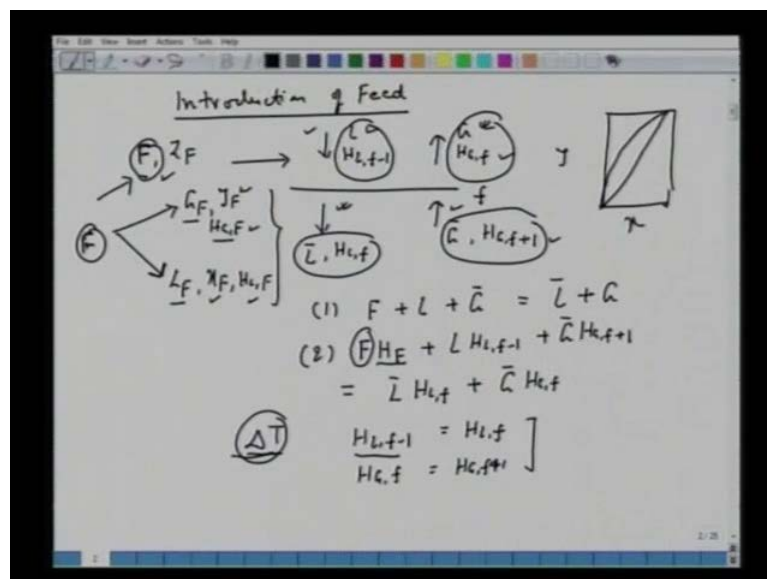 File Edit View Insert Actions Tools Help
Introduction of Feed
F, Z_F → ↓ L H_{L,f-1} ↑ G H_{G,f} y
f
x
F G_F, y_F H_{G,F} ↓ L̄, H_{L,f} ↑ Ḡ, H_{G,f+1}
L_F, x_F, H_{L,F}
(1) F + L + Ḡ = L̄ + G
(2) F H_F + L H_{L,f-1} + Ḡ H_{G,f+1}
= L̄ H_{L,f} + Ḡ H_{G,f}
ΔT H_{L,f-1} = H_{L,f}
H_{G,f} = H_{G,f+1}
2/25
2